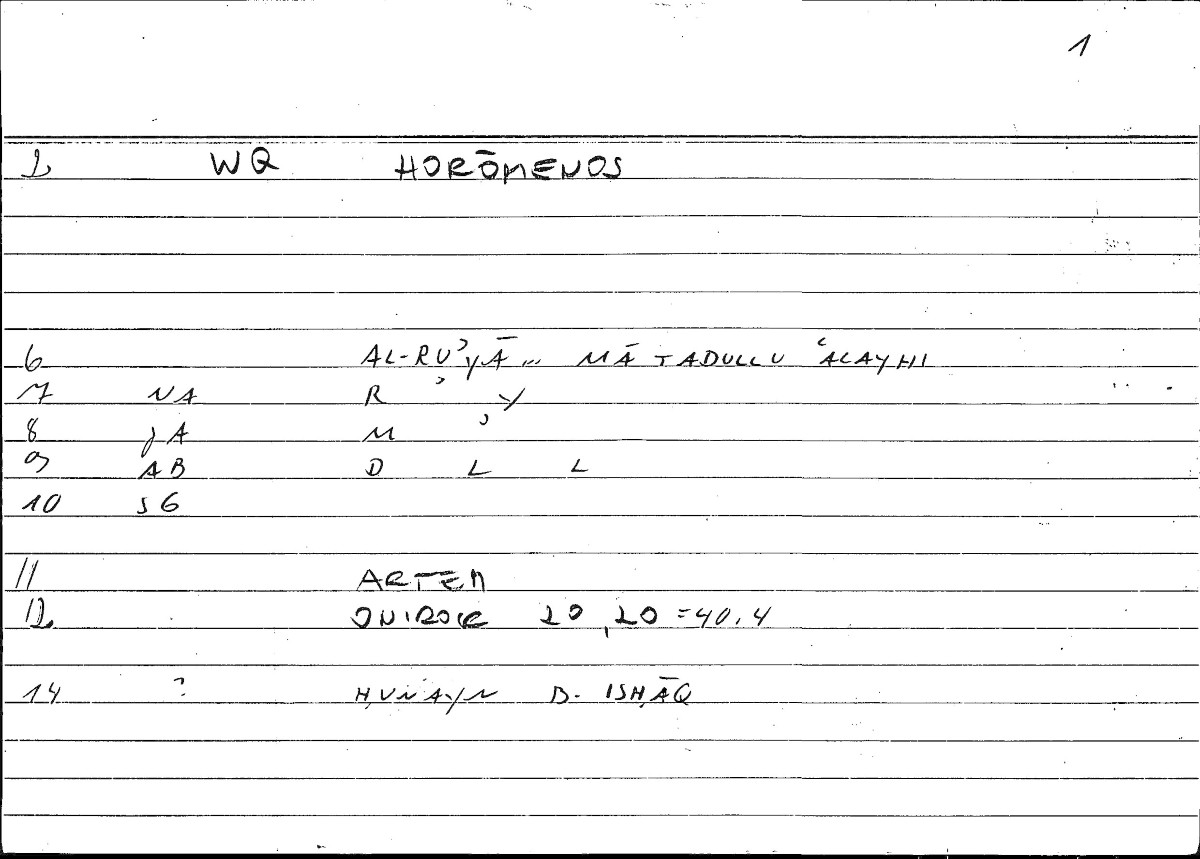 1
2 WQ HORŌMENOS
6 AL-RUʾYĀ... MĀ TADULLU ʿALAYHI
7 NA R ʾ Y
8 JA M ʾ
9 AB D L L
10 SG
11 ARTEM
12 ONIROCR 20,20=40.4
14 ? ḤUNAYN B. ISḤĀQ